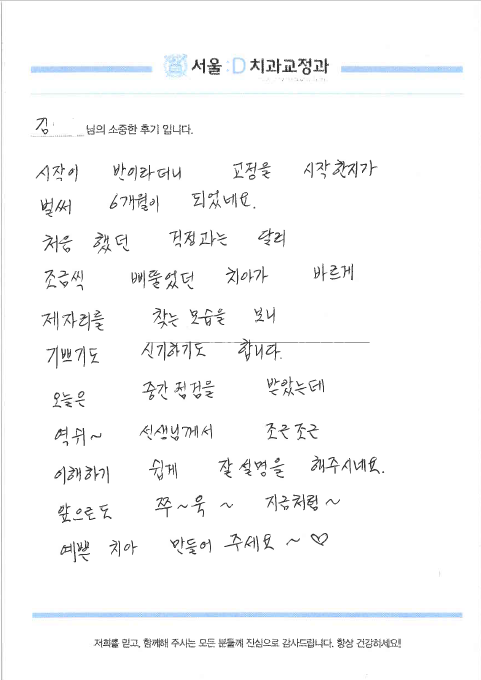 서울:D 치과교정과
김 님의 소중한 후기 입니다.
시작이 반이라더니 교정을 시작한지가
벌써 6개월이 되었네요.
처음 했던 걱정과는 달리
조금씩 삐뚤었던 치아가 바르게
제자리를 찾는 모습을 보니
기쁘기도 신기하기도 합니다.
오늘은 중간점검을 받았는데
역쉬~ 선생님께서 조근조근
이해하기 쉽게 잘 설명을 해주시네요.
앞으로도 쭈~욱~ 지금처럼~
예쁜 치아 만들어 주세요~♡
저희를 믿고, 함께해 주시는 모든 분들께 진심으로 감사드립니다. 항상 건강하세요!